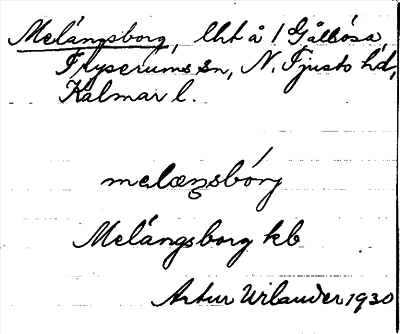 Melångsborg, lht å 1 Gålbósa,
Fryserums sn, N. Tjusts hd,
Kalmar l.
melæŋsbórj
Melångsborg kb
Artur Wilander 1930